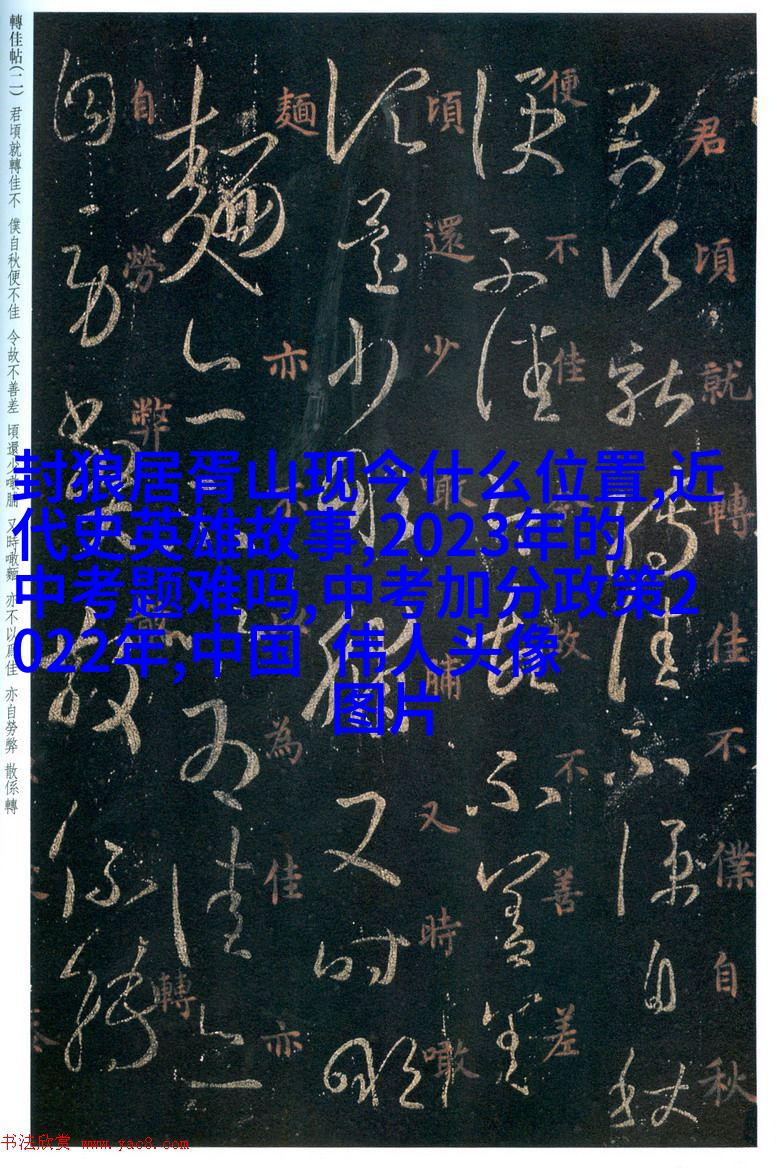 轉佳帖(二) 君頃就轉佳不 僕自秋便不佳 今故不善差 頃還少噉脯 又時噉麵 亦不以爲佳 亦自勞弊 散係轉
君頃就轉佳不僕自秋
便不佳今故不善差
頃還少噉脯又時噉
麵亦不以為佳亦
自勞弊散係轉
封狼居胥山现今什么位置,近
代史英雄故事,2023年的
中考题难吗,中考加分政策2
022年,中国 伟人头像
图片
书法欣赏 www.yac8.com